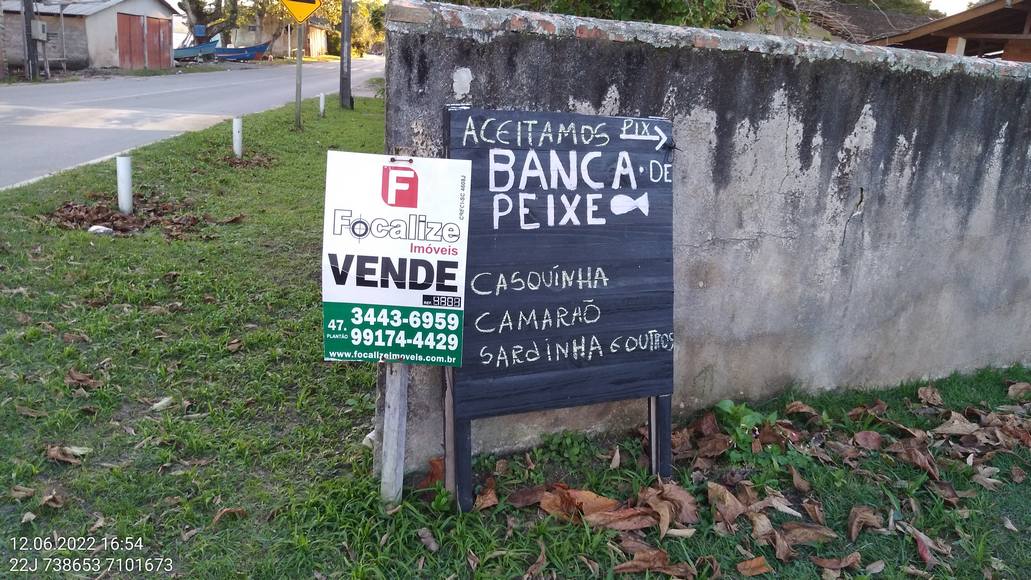 F
CRECI-SC 4093J
Focalize
Imóveis
VENDE
REF.
47. 3443-6959
PLANTÃO 99174-4429
www.focalizeimoveis.com.br
ACEITAMOS PIX
BANCA DE
PEIXE
CASQUÍNHA
CAMARAÕ
SARdiNHA e OUTROS
12.06.2022 16:54
22J 738653 7101673